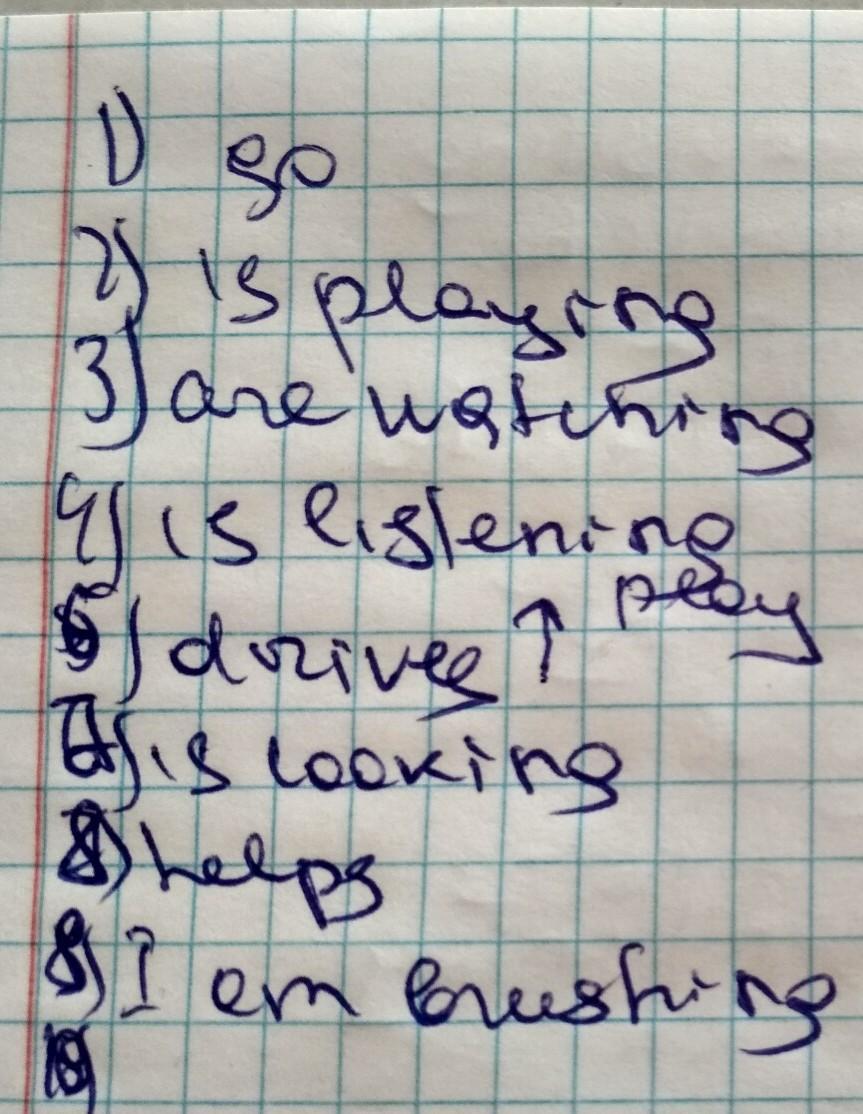 1) go
2) is playing
3) are watching
4) is listening
play
5) drives ↑
7) is looking
8) helps
9) I am brushing
10)